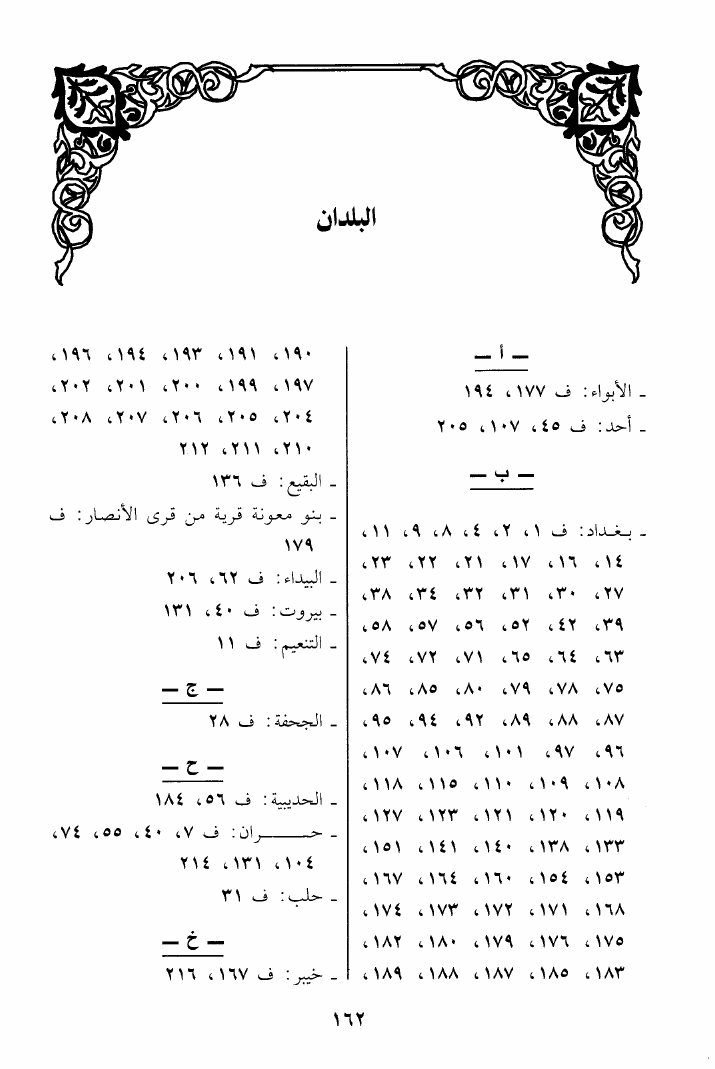 البلدان
ـ أ ـ
ـ الأبواء: ف ١٧٧، ١٩٤
ـ أحد: ف ٤٥، ١٠٧، ٢٠٥
ـ ب ـ
ـ بغداد: ف ١، ٢، ٤، ٨، ٩، ١١،
١٤، ١٦، ١٧، ٢١، ٢٢، ٢٣،
٢٧، ٣٠، ٣١، ٣٢، ٣٤، ٣٨،
٣٩، ٤٢، ٥٢، ٥٦، ٥٧، ٥٨،
٦٣، ٦٤، ٦٥، ٧١، ٧٢، ٧٤،
٧٥، ٧٨، ٧٩، ٨٠، ٨٥، ٨٦،
٨٧، ٨٨، ٨٩، ٩٢، ٩٤، ٩٥،
٩٦، ٩٧، ١٠١، ١٠٦، ١٠٧،
١٠٨، ١٠٩، ١١٠، ١١٥، ١١٨،
١١٩، ١٢٠، ١٢١، ١٢٣، ١٢٧،
١٣٣، ١٣٨، ١٤٠، ١٤١، ١٥١،
١٥٣، ١٥٤، ١٦٠، ١٦٤، ١٦٧،
١٦٨، ١٧١، ١٧٢، ١٧٣، ١٧٤،
١٧٥، ١٧٦، ١٧٩، ١٨٠، ١٨٢،
١٨٣، ١٨٥، ١٨٧، ١٨٨، ١٨٩،
١٩٠، ١٩١، ١٩٣، ١٩٤، ١٩٦،
١٩٧، ١٩٩، ٢٠٠، ٢٠١، ٢٠٢،
٢٠٤، ٢٠٥، ٢٠٦، ٢٠٧، ٢٠٨،
٢١٠، ٢١١، ٢١٢
ـ البقيع: ف ١٣٦
ـ بنو معونة قرية من قرى الأنصار: ف
١٧٩
ـ البيداء: ف ٦٢، ٢٠٦
ـ بيروت: ف ٤٠، ١٣١
ـ التنعيم: ف ١١
ـ ج ـ
ـ الجحفة: ف ٢٨
ـ ح ـ
ـ الحديبية: ف ٥٦، ١٨٤
ـ حـــــران: ف ٧، ٤٠، ٥٥، ٧٤،
١٠٤، ١٣١، ٢١٤
ـ حلب: ف ٣١
ـ خ ـ
ـ خيبر: ف ١٦٧، ٢١٦
١٦٢